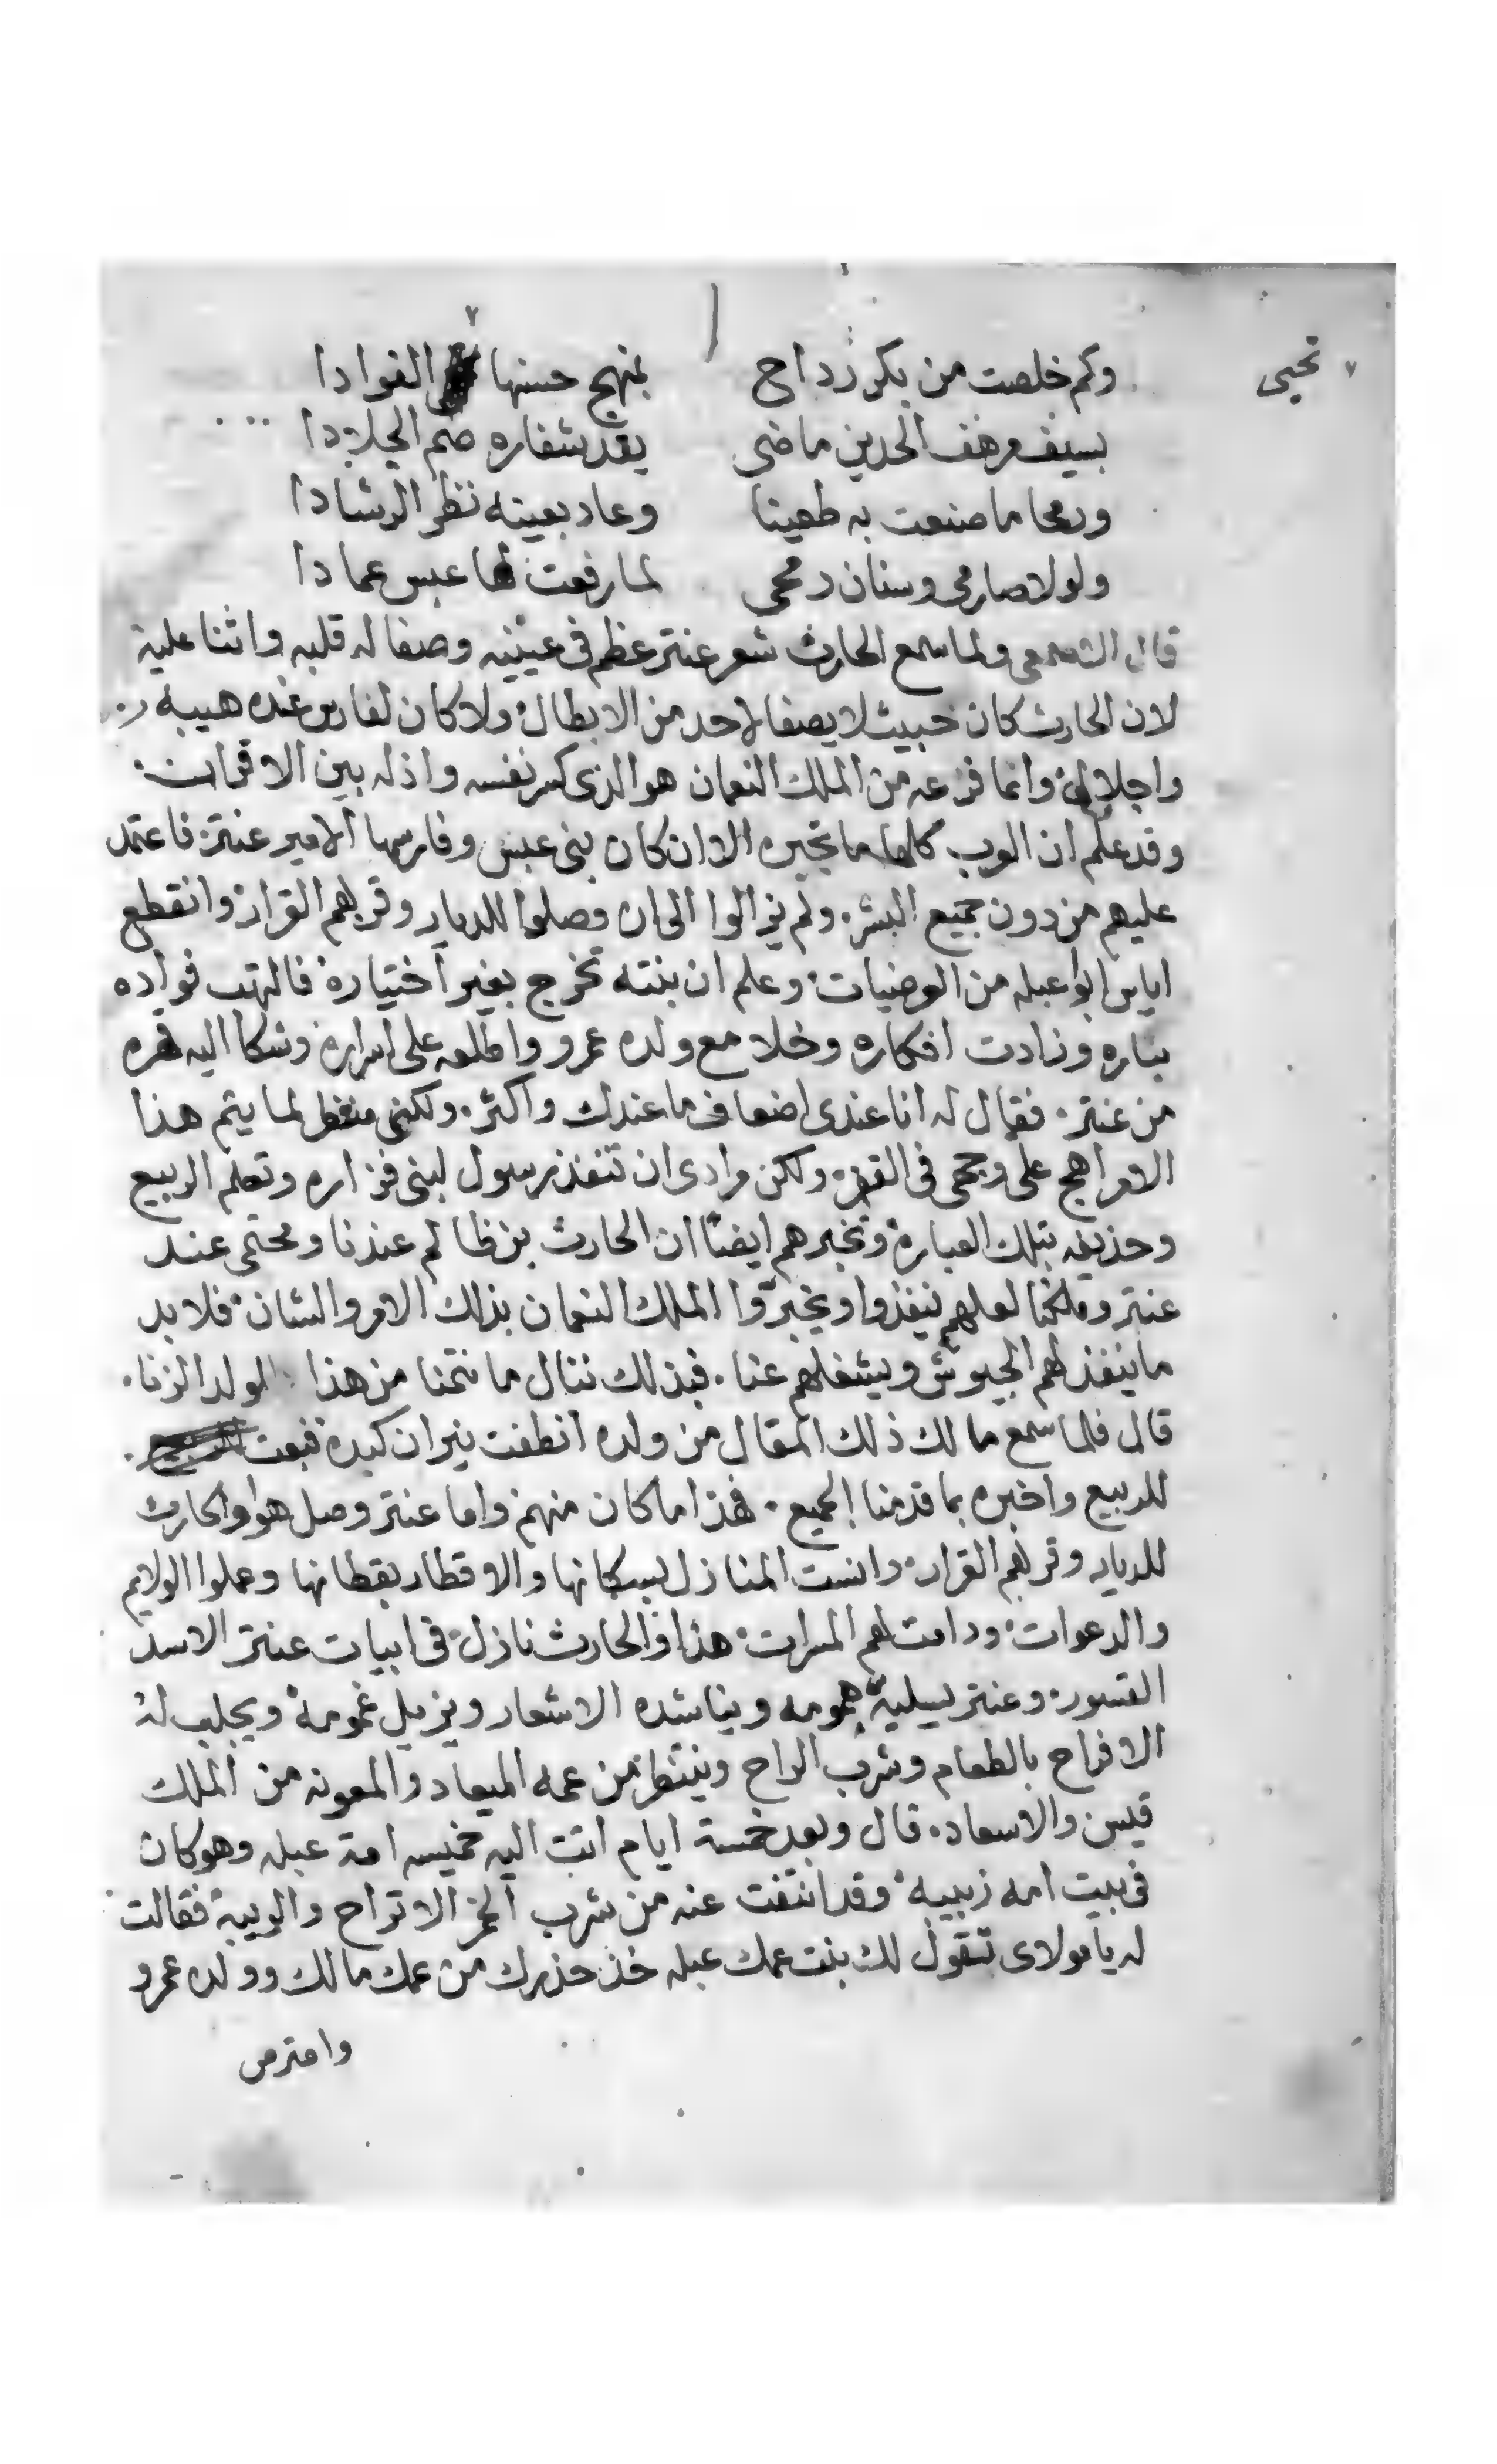 وكم خلصت من بكر رداح بمنهج حسنها الفوادا
تحيى
بسيف مرهف الحدين ماضى يقد شفاره صم الجلادا
ورمحا ما صنعت به طعينا وعاد بعينه نظر الرشادا
ولولا صارمى وسنان رمحى لما رفعت لها عبس عمادا
قال الاصمعى ولما سمع الحارث شعر عنتر عظم فى عينيه وصفا له قلبه واثنا عليه
لان الحارث كان خبيث لا يصفا لاحد من الابطال ولا كان لفارس عنده هيبه
واجلال وانما فزعه من الملك النعمان هو الذى كسر نفسه واذله بين الاقران
وقد علم ان العرب كلها ما تجيره الا ان كان بنى عبس وفارسها الامير عنتره فاعتمد
عليهم من دون جميع البشر ولم يزالوا الى ان وصلوا للديار وقر بهم القرار وانقطع
اياس ابوا عبله من الوصيات وعلم ان بنته تخرج بغير اختياره فالتهب فواده
بناره وزادت افكاره وخلا مع ولده عمرو واطلعه على اسراره وشكا اليه قهره
من عنتر فقال له انا عندى اضعاف ما عندك واكثر ولكنى منتظر لما يتم هذا
الامر اهج على وجهى فى القفر ولكن مرادى ان تنفذ رسول لبنى فزاره وتعلم الربيع
وحذيفه بتلك العباره وتخبرهم ايضا ان الحارث بن ظالم عندنا ومحتمى عند
عنتر وملكنا لعلهم ينفذوا ويخبروا الملك النعمان بذلك الامر والشان فلا بد
ما ينفذ لهم الجيوش ويشغلهم عنا فبذلك ننال ما نتمنا من هذا الولد الزنا
قال فلما سمع مالك ذلك المقال من ولده انطفت نيران كبده فبعت
للربيع واخبره بما قدمنا الجميع فهذا ما كان منهم واما عنتر وصل هو والحارث
للديار وقر بهم القرار وانست المنازل بسكانها والاقطار بقطانها وعملوا الولايم
والدعوات ودامت لهم المسرات هذا والحارث نازل فى ابيات عنتر الاسد
القسور وعنتر يسليه همومه ويناشده الاشعار ويزيل غمومه ويجلب له
الافراح بالطعام وشرب الراح وينتظر من عمه الميعاد والمعونه من الملك
قيس والاسعاد قال وبعد خمسة ايام اتت اليه خميسه امة عبله وهو كان
فى بيت امه زبيبه وقد انتفت عنه من شرب الخمر الاتراح والريبة فقالت
له يا مولاى تقول لك بنت عمك عبله خذ حذرك من عمك مالك وولده عمرو
واحترص